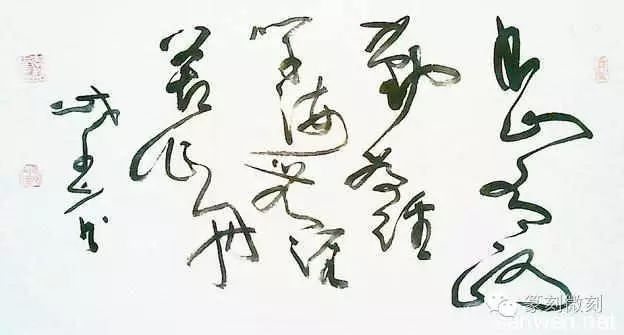 书山有路
勤为径
学海无涯
苦作舟
篆刻微刻
sanwen.net